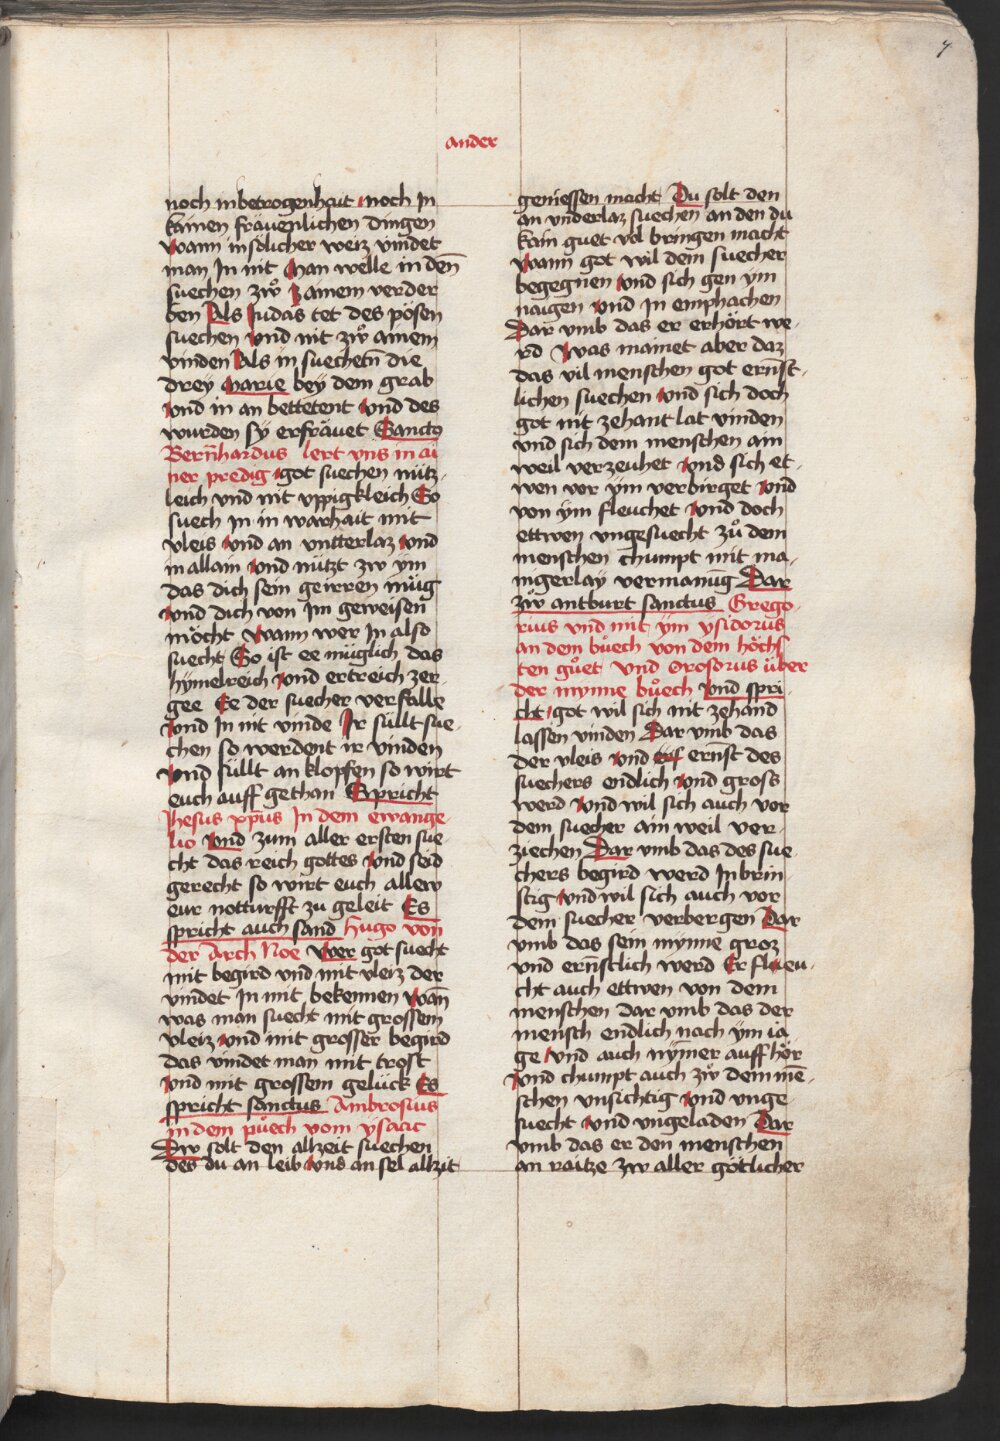 7
ander
noch in betrogenhait noch In
kainen fräuenlichen dingen
Wann in sölicher weiz vindet
man In nit Man welle in deñ
suechen zwͦ Jamem verder
ben Als Judas tet des pösen
suechen vnd nit zwͦ ainem
vinden Als in suechetn̄ die
drey marie bey dem grab
vnd in an bettetent vnd des
wurden sy erfräuet Sancto
Bern̄hardus lert vns in ai
ner predig got suechen nütz
leich vnd nit vppigkleich So
suech In in warhait mit
vleis vnd an vntterlaz vnd
in allain vnd nützt zw ym
das dich sein geirren müg
vnd dich von Im geweisen
möcht Wann wer In also
suecht So ist ee müglich das
hymelreich vnd ertreich zer
gee Ee der suecher verfalle
vnd In nit vinde Ir süllt sue
chen so werdent ir vinden
vnd süllt an klopfen so wirt
euch auff gethan Spricht
Jhesus xp̄us In dem ewange
lio Und zum aller ersten sue
cht das reich gottes vnd seid
gerecht so wirt euch allew
eur notturfft zu geleit Es
spricht auch sand Hugo von
der Arch Noe Wer got suecht
mit begird vnd mit vleiz der
vindet In mit bekennen Wañ
was man suecht mit grossem
vleiz vnd mit grosser begird
das vindet man mit trost
vnd mit grossem gelück Es
spricht sanctus Ambrosius
in dem puͦech vom ysaac
Dw solt den allzeit suechen
des du an leib vnd an sel allzit
geniessen macht Du solt den
an vnderlaz suechen an den du
kain guet vol bringen macht
Wann got wil dem suecher
begegnen vnd sich gen ym
naigen vnd In emphachen
Dar vmb das er erhört we
rd Was mainet aber daz
das vil menschen got ern̄st
lichen suechen vnd sich doch
got nit zehant lat vinden
vnd sich dem menschen ain
weil verzeuhet vnd sich et
wen vor ym verbirget vnd
von ym fleuchet vnd doch
ettwen vngesuecht zuͦ dem
menschen chumpt mit ma
nigerlay vermanūg Dar
zwͦ antburt sanctus Grego
rius vnd mit ym ysidorus
an dem buͦech von dem höchs
ten guͦet Vnd Orosorus über
der mynne buͦech Vnd spri
cht got wil sich nit zehand
lassen vinden Dar vmb das
der vleis vnd ernst des
suechers endlich vnd gross
werd vnd wil sich auch vor
dem suecher ain weil ver
ziechen Dar vmb das des sue
chers begird werd Inbrin
stig vnd wil sich auch vor
dem suecher verbergen Dar
vmb das sein mynne groz
vnd ern̄stlich werd Er fleu
cht auch ettwen von dem
menschen dar vmb das der
mensch endlich nach ym ia
ge vnd auch nȳmer auff hör
vnd chumpt auch zwͦ dem mē
schen vnsichtig vnd vnge
suecht vnd vngeladen Dar
vmb das er den menschen
an raitze zw aller götlicher